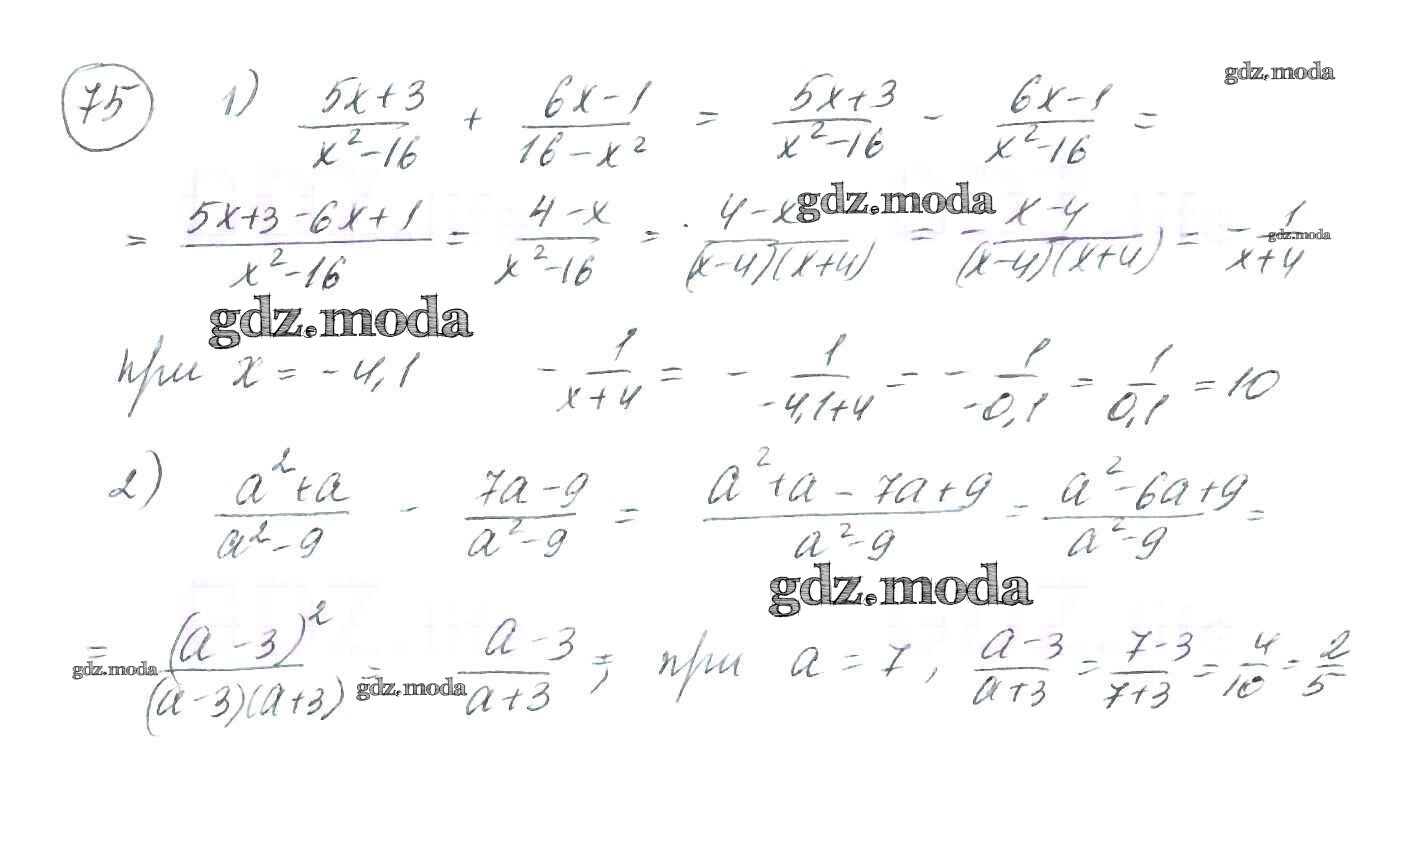 75 1) (5x+3)/(x²-16) + (6x-1)/(16-x²) = (5x+3)/(x²-16) - (6x-1)/(x²-16) =
gdz.moda
= (5x+3-6x+1)/(x²-16) = (4-x)/(x²-16) = (4-x)/((x-4)(x+4)) = - (x-4)/((x-4)(x+4)) = - 1/(x+4)
gdz.moda gdz.moda
gdz.moda
при x = -4,1 - 1/(x+4) = - 1/(-4,1+4) = - 1/(-0,1) = 1/(0,1) = 10
2) (a²+a)/(a²-9) - (7a-9)/(a²-9) = (a²+a-7a+9)/(a²-9) = (a²-6a+9)/(a²-9) =
gdz.moda
= (a-3)²/((a-3)(a+3)) = (a-3)/(a+3) ; при a = 7, (a-3)/(a+3) = (7-3)/(7+3) = 4/10 = 2/5
gdz.moda gdz.moda